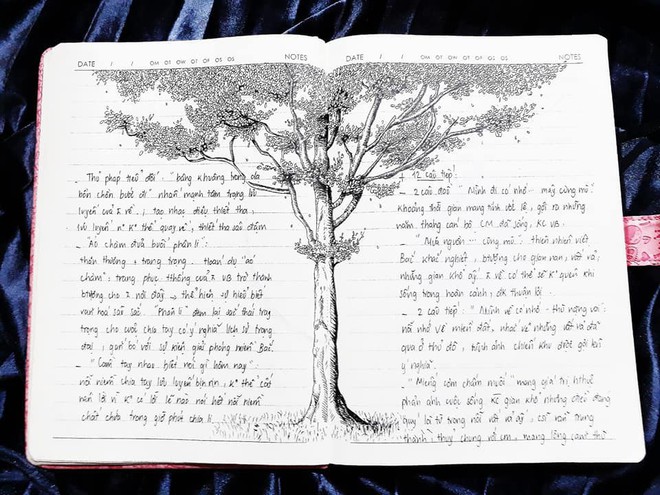 DATE / / OM OT OW OT OF OS OS NOTES
- Thủ pháp tiểu đối: "bâng khuâng trong dạ
bồn chồn bước đi" nhấn mạnh tâm trạng lưu
luyến của
tạo nhạc điệu thiết tha,
lưu luyến n K thể quay, thiết tha sâu đậm
- "Áo chàm đưa buổi phân li":
thân thương + trang trọng. Hoán dụ "áo
chàm": trang phục thống của VB trở thành
btượng cho 2 nơi đây → thể hiện sự hiểu biết
văn hoá sâu sắc. "Phân li" đem lại sắc thái trang
trọng cho cuộc chia tay có ý nghĩa lịch sử trong
đại, gắn bó với sự kiện giải phóng miền Bắc.
- "Cầm tay nhau biết nói gì hôm nay":
nỗi niềm chia tay lưu luyến bịn rịn, K thể cất
nên lời vì K có lời lẽ nào nói hết nỗi niềm
chất chứa trong giờ phút chia li
DATE / / OM OT OW OT OF OS OS NOTES
+ 12 câu tiếp:
- 2 câu đầu "Mình đi có nhớ - mây cùng mù":
Khoảng thời gian mang tính ước lệ, gợi ra những
năm tháng cán bộ CM đã sống, KC VB.
- "Mưa nguồn ... cùng mù": thiên nhiên việt
Bắc khắc nghiệt, btượng cho gian nan, vất vả,
những gian khổ ấy 2 về có thể sẽ K quên khi
sống trong hoàn cảnh, đk thuận lợi.
- 2 câu tiếp: "Mình về có nhớ - thù nặng vai":
nỗi nhớ về miền đất, nhắc về những vất vả đã
qua ở thủ đô, kích anh chiến khu được gợi khi
ý nghĩa.
- "Miếng cơm chấm muối" mang giá trị hthực
phản ánh cuộc sống KC gian khổ nhưng điều đáng
quý lại từ trong nỗi vất vả ấy, còn vẫn trung
thành, thuỷ chung với cm, mang lòng căm thù